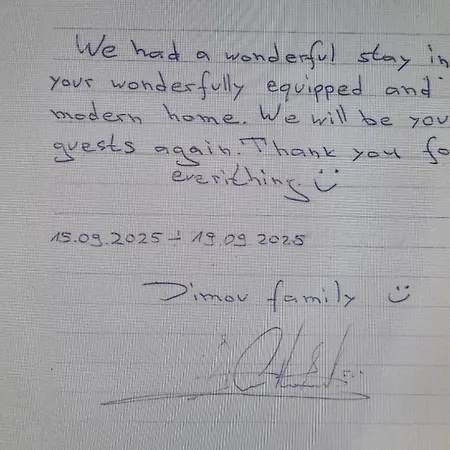 We had a wonderful stay in
your wonderfully equipped and
modern home. We will be you
guests again. Thank you fo
everithing. :)
15.09.2025 - 19.09.2025
Dimov family :)